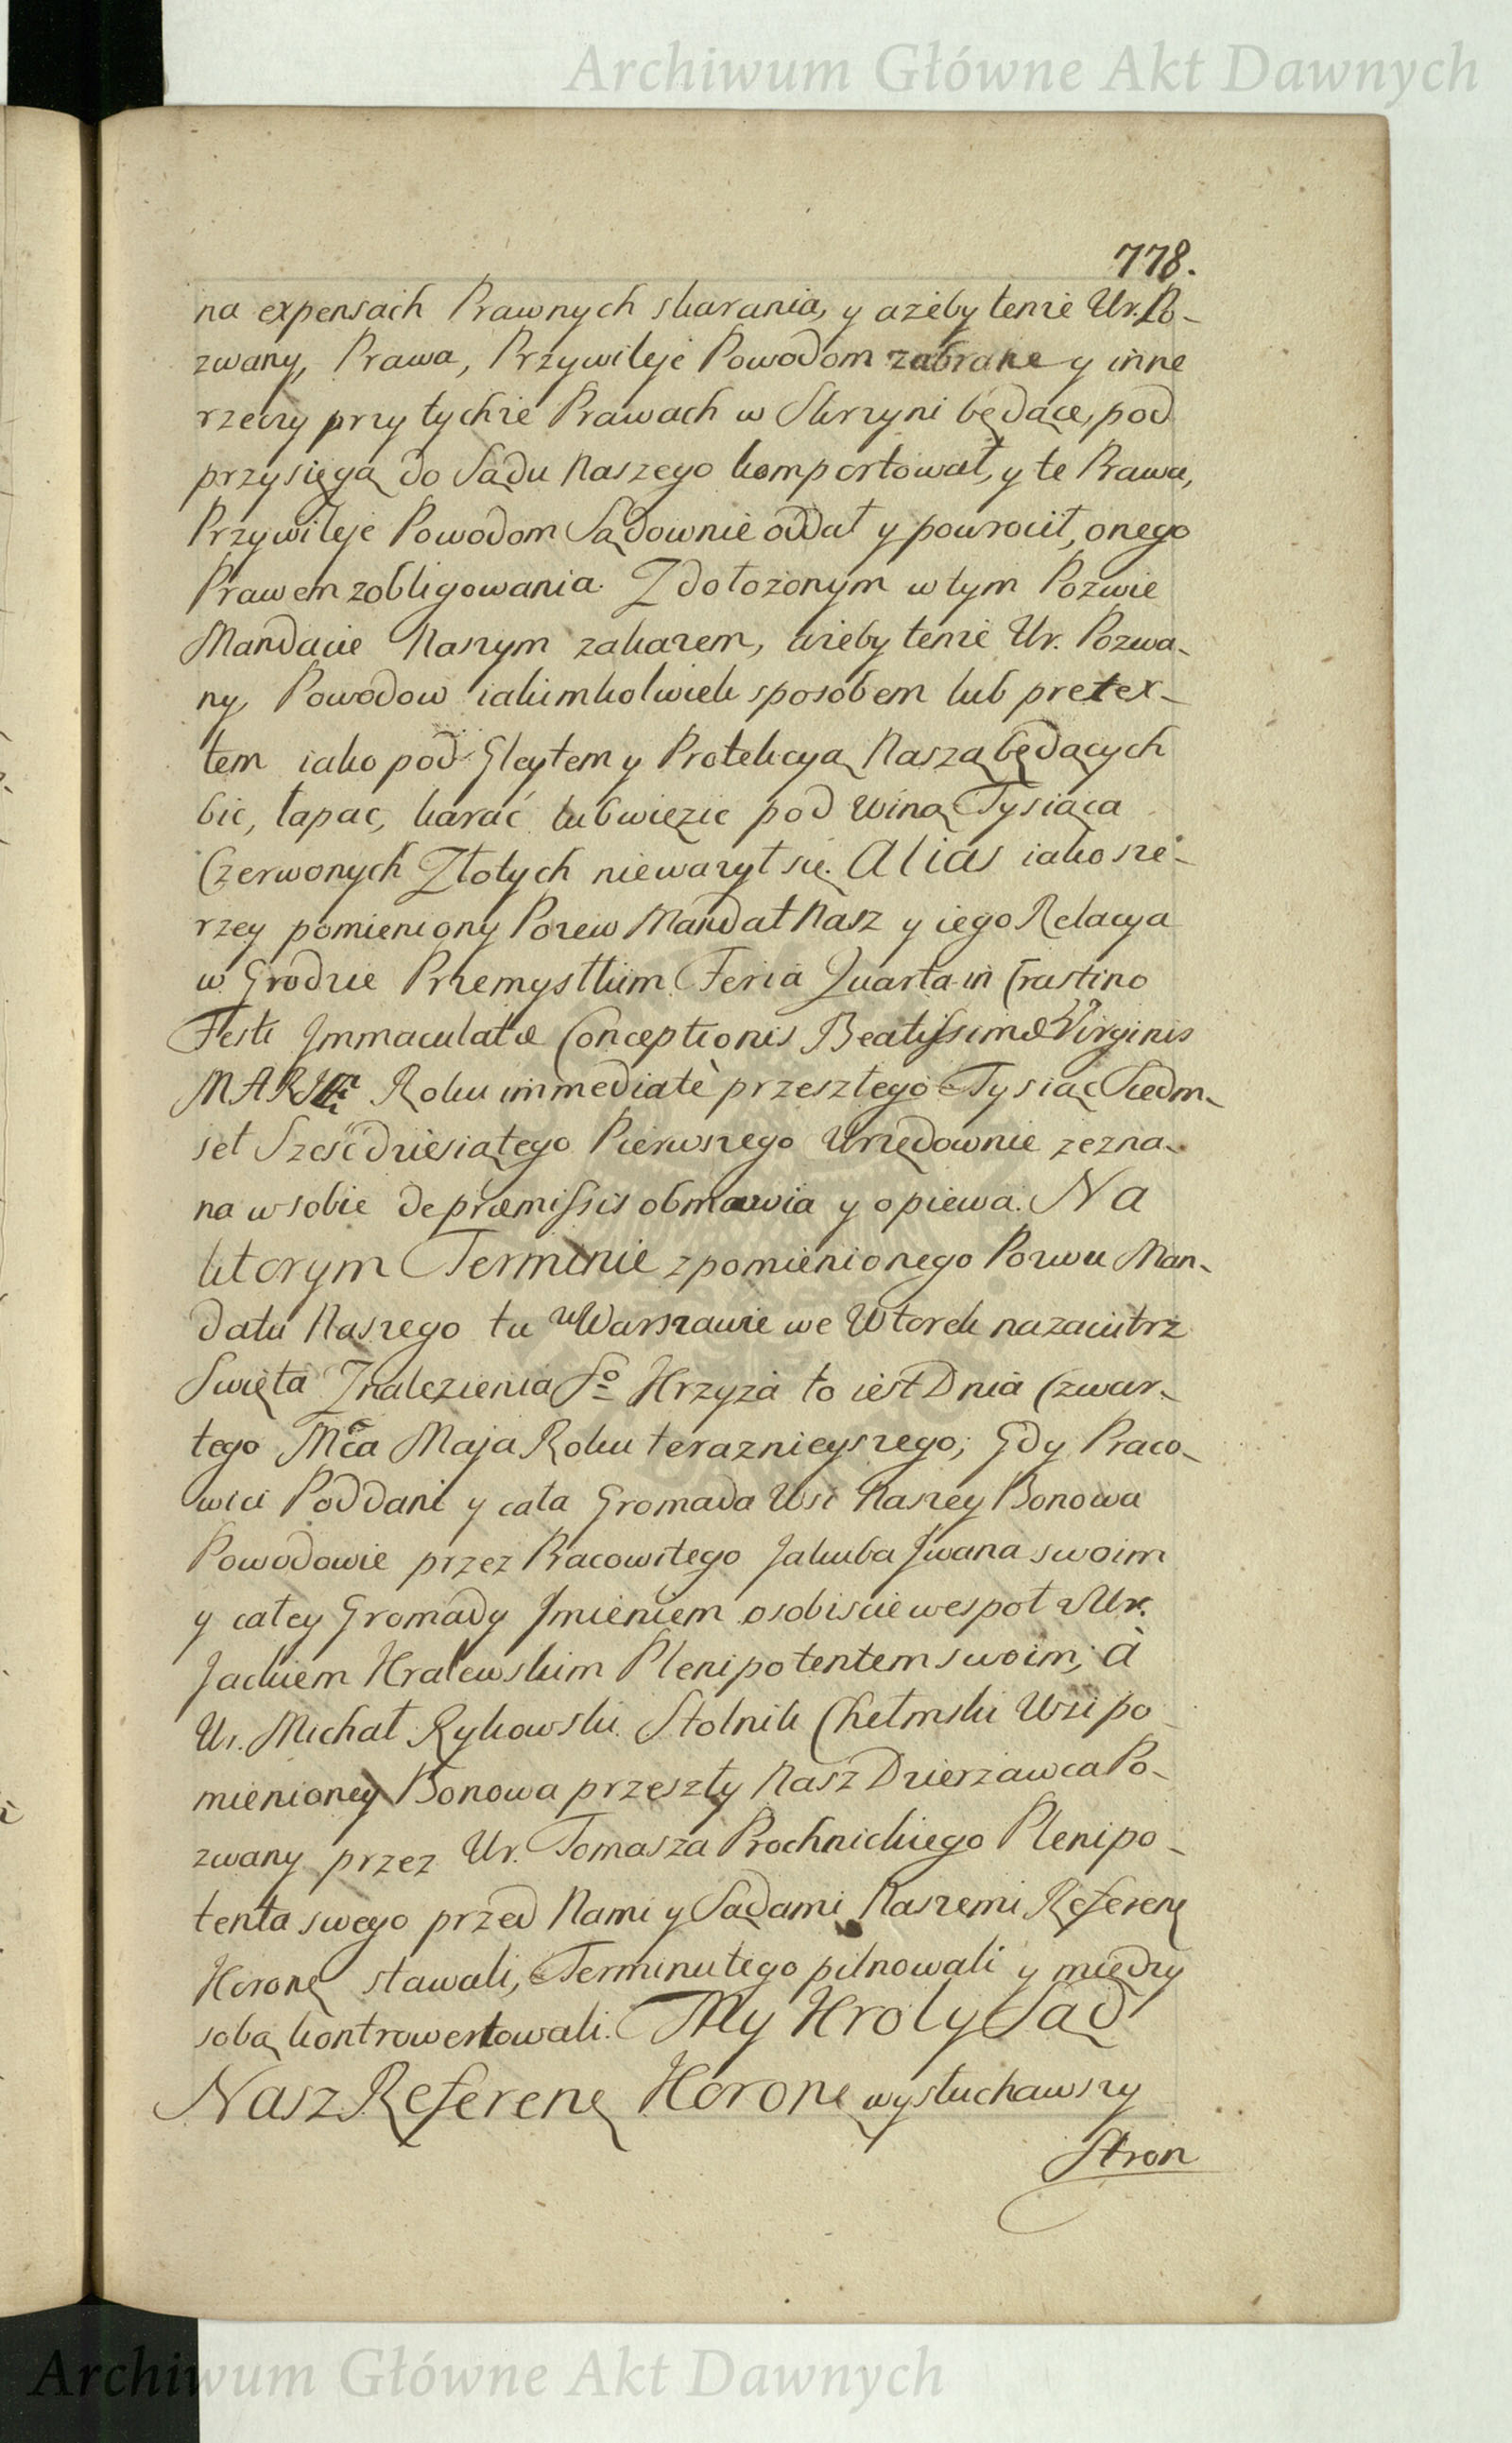 Archiwum Główne Akt Dawnych
778.
na expensach Prawnych skarania, y ażeby tenże Ur. Po-
zwany, Prawa, Przywileje Powodom zabrane y inne
rzeczy przy tychże Prawach w Skrzyni będące, pod
przysięgą do Sądu Naszego komportował, y te Prawa,
Przywileje Powodom Sądownie oddał y powrocił, onego
Prawem zobligowania. Z dołożonym w tym Pozwie
Mandacie Naszym zakazem, ażeby tenże Ur. Pozwa-
ny, Powodow iakimkolwiek sposobem lub pretex-
tem iako pod Gleytem y Protekcyą Naszą będących
bic, łapac, karać lub więzic pod winą Tysiąca
Czerwonych Złotych nieważył się. Alias iako sze-
rzey pomieniony Pozew Mandat Nasz y iego Relacya
w Grodzie Przemyslkim Feria Quarta in Crastino
Festi Immaculatæ Conceptionis Beatissimæ Virginis
MARIÆ Roku immediatè przeszłego Tysiąc Siedm-
set Sześćdziesiątego Pierwszego Urzędownie zezna-
na w sobie de præmissis obmawia y opiewa. Na
ktorym Terminie z pomienionego Pozwu Man-
datu Naszego tu w Warszawie we Wtorek nazaiutrz
Swięta Znalezienia So Krzyża to iest Dnia Czwar-
tego Mca Maja Roku terazniejszego; Gdy Praco-
wici Poddani y cała Gromada Wsi Naszey Bonowa
Powodowie przez Pracowitego Jakuba Iwana swoim
y całey Gromady Imieniem osobiscie wespoł z Ur.
Jackiem Kralewskim Plenipotentem swoim; à
Ur. Michał Rykowski Stolnik Chełmski Wsi po-
mienioney Bonowa przeszły Nasz Dzierżawca Po-
zwany przez Ur. Tomasza Prochnickiego Plenipo-
tenta swego przed Nami y Sądami Naszemi Referen
Koron stawali, Terminu tego pilnowali y między
sobą kontrowertowali. My Krol y Sąd
Nasz Referen Koron wysłuchawszy
Stron
Archiwum Główne Akt Dawnych